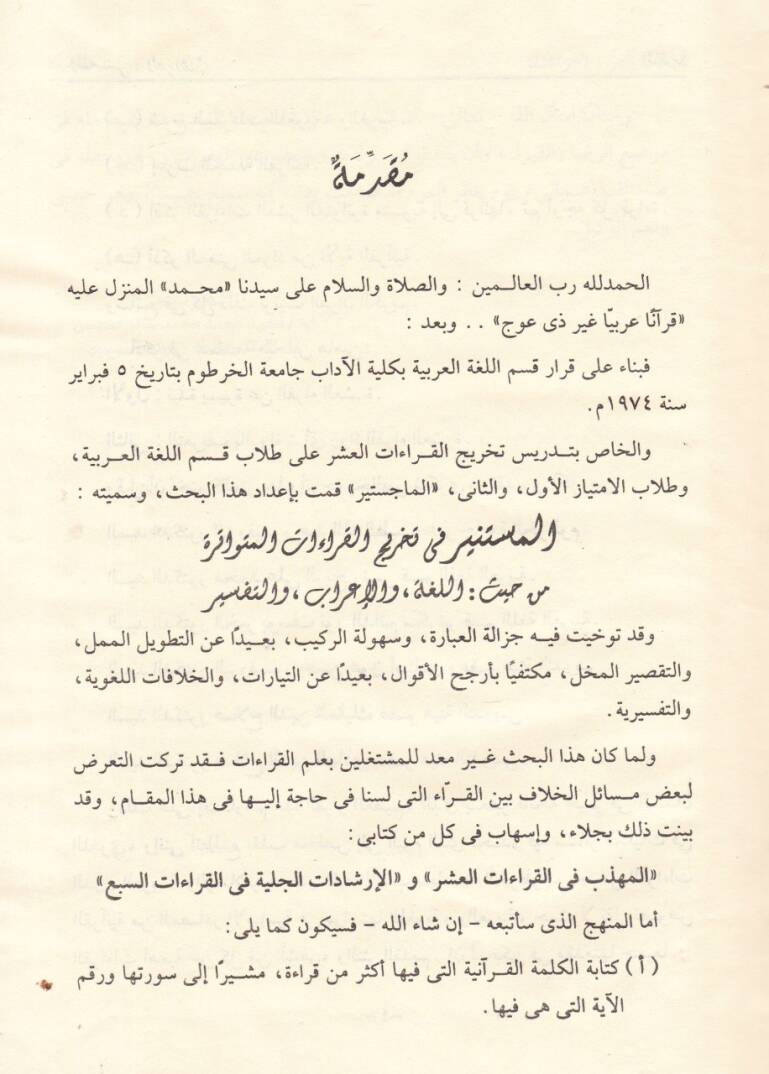 مُقَدِّمَةٌ
الحمدلله رب العالـمين : والصلاة والسلام على سيدنا «محـمد» المنزل عليه
«قرآنًا عربيّا غير ذى عوج» . . وبعد :
فبناء على قرار قسم اللغة العربية بكلية الآداب جامعة الخرطوم بتاريخ ٥ فبراير
سنة ١٩٧٤م.
والخاص بتـدريس تخريج القـراءات العشر على طلاب قـسم اللغة العـربية،
وطلاب الامتياز الأول، والثانى، «الماجستير» قمت بإعداد هذا البحث، وسميته :
المستنير فى تخريج القراءات المتواترة
من حيث : اللغة ، والإعراب ، والتفسير
وقد توخيت فيـه جزالة العبارة، وسهولة الركيب، بعـيدًا عن التطويل الممل،
والتقصير المخل، مكتفيًا بأرجح الأقوال، بعيدًا عن التيارات، والخلافات اللغوية،
والتفسيرية.
ولما كان هذا البحث غـير معد للمشتغلين بعلم القراءات فـقد تركت التعرض
لبعض مـسائل الخلاف بين القـرّاء التى لسنا فى حاجة إليـها فى هذا المقـام، وقد
بينت ذلك بجلاء، وإسهاب فى كل من كتابى:
«المهذب فى القراءات العشر» و «الإرشادات الجلية فى القراءات السبع»
أما المنهج الذى سأتبعه – إن شاء الله – فسيكون كما يلى:
(أ) كتابة الكلمة القـرآنية التى فيها أكثر من قراءة، مشـيرًا إلى سورتها ورقم
الآية التى هى فيها.